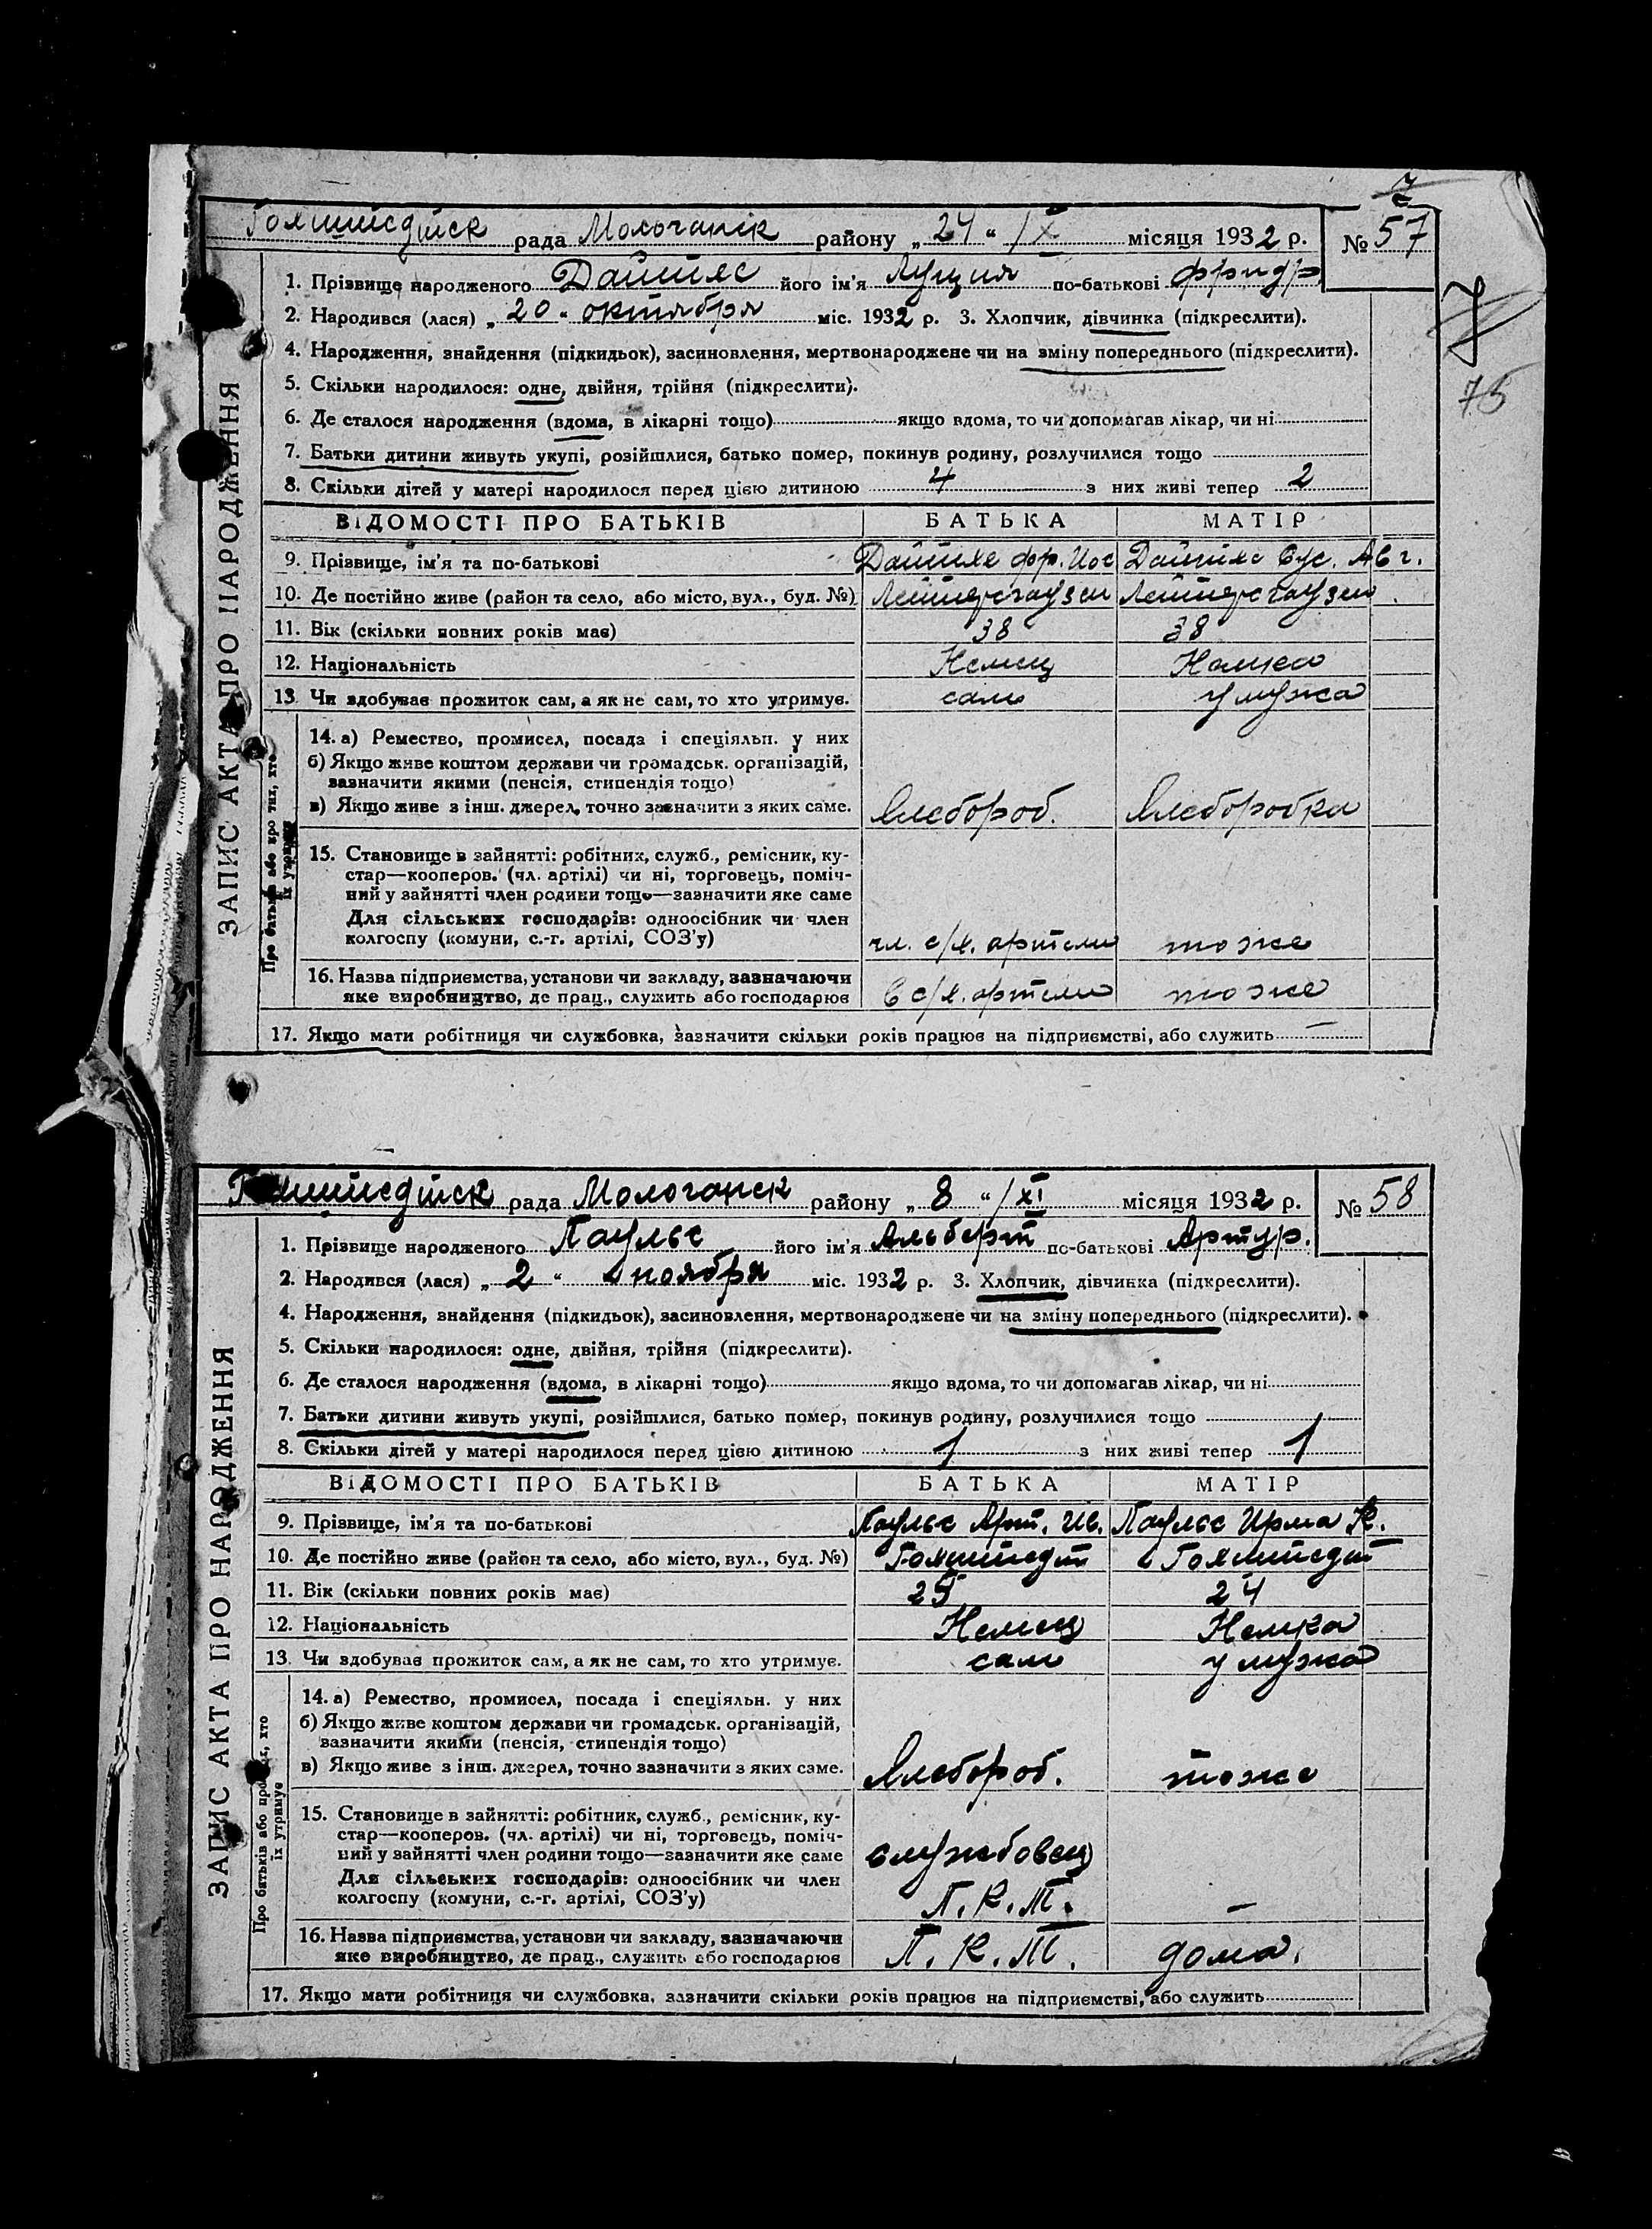 рада Молочанск району „ 24 “ /X місяця 1932 р. № 57
1. Прізвище народженого його ім'я Луция по-батькові Фридр.
2. Народився (лася) „ 20 “ октября міс. 1932 р. 3. Хлопчик, дівчинка (підкреслити).
4. Народження, знайдення (підкидьок), засиновлення, мертвонароджене чи на зміну попереднього (підкреслити).
5. Скільки народилося: одне, двійня, трійня (підкреслити).
6. Де сталося народження (вдома, в лікарні тощо) якщо вдома, то чи допомагав лікар, чи ні
7. Батьки дитини живуть укупі, розійшлися, батько помер, покинув родину, розлучилися тощо
8. Скільки дітей у матері народилося перед цією дитиною 4 з них живі тепер 2
ЗАПИС АКТА ПРО НАРОДЖЕННЯ
75
ВІДОМОСТІ ПРО БАТЬКІВ БАТЬКА МАТІР
9. Прізвище, ім'я та по-батькові
10. Де постійно живе (район та село, або місто, вул., буд. №)
11. Вік (скільки повних років має) 38 38
12. Національність Немец Немка
13. Чи здобуває прожиток сам, а як не сам, то хто утримує. сам у мужа
Про батьків або про тих, хто
їх утримує
14. а) Ремество, промисел, посада і спеціяльн. у них
б) Якщо живе коштом держави чи громадськ. організацій,
зазначити якими (пенсія, стипендія тощо)
в) Якщо живе з інш. джерел, точно зазначити з яких саме. Хлебороб. Хлеборобка
15. Становище в зайнятті: робітник, служб., ремісник, ку-
стар—кооперов. (чл. артілі) чи ні, торговець, поміч-
ний у зайнятті член родини тощо—зазначити яке саме
Для сільських господарів: одноосібник чи член
колгоспу (комуни, с.-г. артілі, СОЗ'у) чл. с/х. артели тоже
16. Назва підприємства, установи чи закладу, зазначаючи
яке виробництво, де прац., служить або господарює в с/х. артели тоже
17. Якщо мати робітниця чи службовка, зазначити скільки років працює на підприємстві, або служить —
рада Молочанск району „ 8 “ /XI місяця 1932 р. № 58
1. Прізвище народженого Паульс його ім'я Альберт по-батькові Артур.
2. Народився (лася) „ 2 “ ноября міс. 1932 р. 3. Хлопчик, дівчинка (підкреслити).
4. Народження, знайдення (підкидьок), засиновлення, мертвонароджене чи на зміну попереднього (підкреслити).
5. Скільки народилося: одне, двійня, трійня (підкреслити).
6. Де сталося народження (вдома, в лікарні тощо) якщо вдома, то чи допомагав лікар, чи ні
7. Батьки дитини живуть укупі, розійшлися, батько помер, покинув родину, розлучилися тощо
8. Скільки дітей у матері народилося перед цією дитиною 1 з них живі тепер 1
ЗАПИС АКТА ПРО НАРОДЖЕННЯ
ВІДОМОСТІ ПРО БАТЬКІВ БАТЬКА МАТІР
9. Прізвище, ім'я та по-батькові Паульс Арт. Ив. Паульс Ирма К.
10. Де постійно живе (район та село, або місто, вул., буд. №)
11. Вік (скільки повних років має) 25 24
12. Національність Немец Немка
13. Чи здобуває прожиток сам, а як не сам, то хто утримує. сам у мужа
Про батьків або про тих, хто
їх утримує
14. а) Ремество, промисел, посада і спеціяльн. у них
б) Якщо живе коштом держави чи громадськ. організацій,
зазначити якими (пенсія, стипендія тощо)
в) Якщо живе з інш. джерел, точно зазначити з яких саме. Хлебороб. тоже
15. Становище в зайнятті: робітник, служб., ремісник, ку-
стар—кооперов. (чл. артілі) чи ні, торговець, поміч-
ний у зайнятті член родини тощо—зазначити яке саме службовец
Для сільських господарів: одноосібник чи член
колгоспу (комуни, с.-г. артілі, СОЗ'у) П. К. Т. —
16. Назва підприємства, установи чи закладу, зазначаючи
яке виробництво, де прац., служить або господарює П. К. Т. дома.
17. Якщо мати робітниця чи службовка, зазначити скільки років працює на підприємстві, або служить